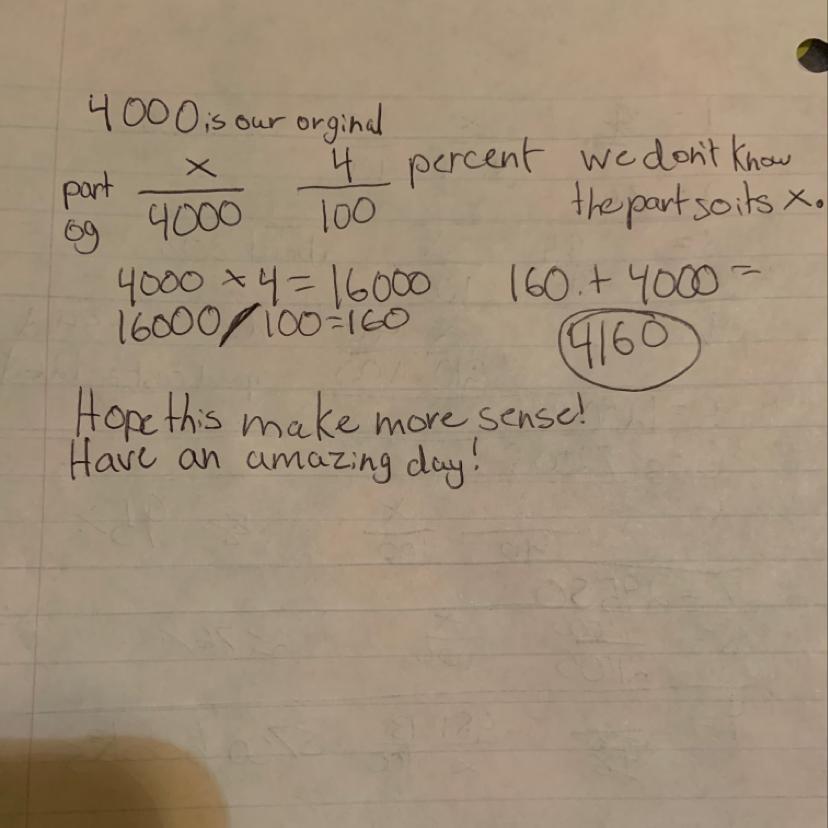 4000 is our orginal
part x/4000 4/100 percent we don't know
og the part so its x.
4000 x 4 = 16000 160. + 4000 =
16000/100=160 4160
Hope this make more sense!
Have an amazing day!